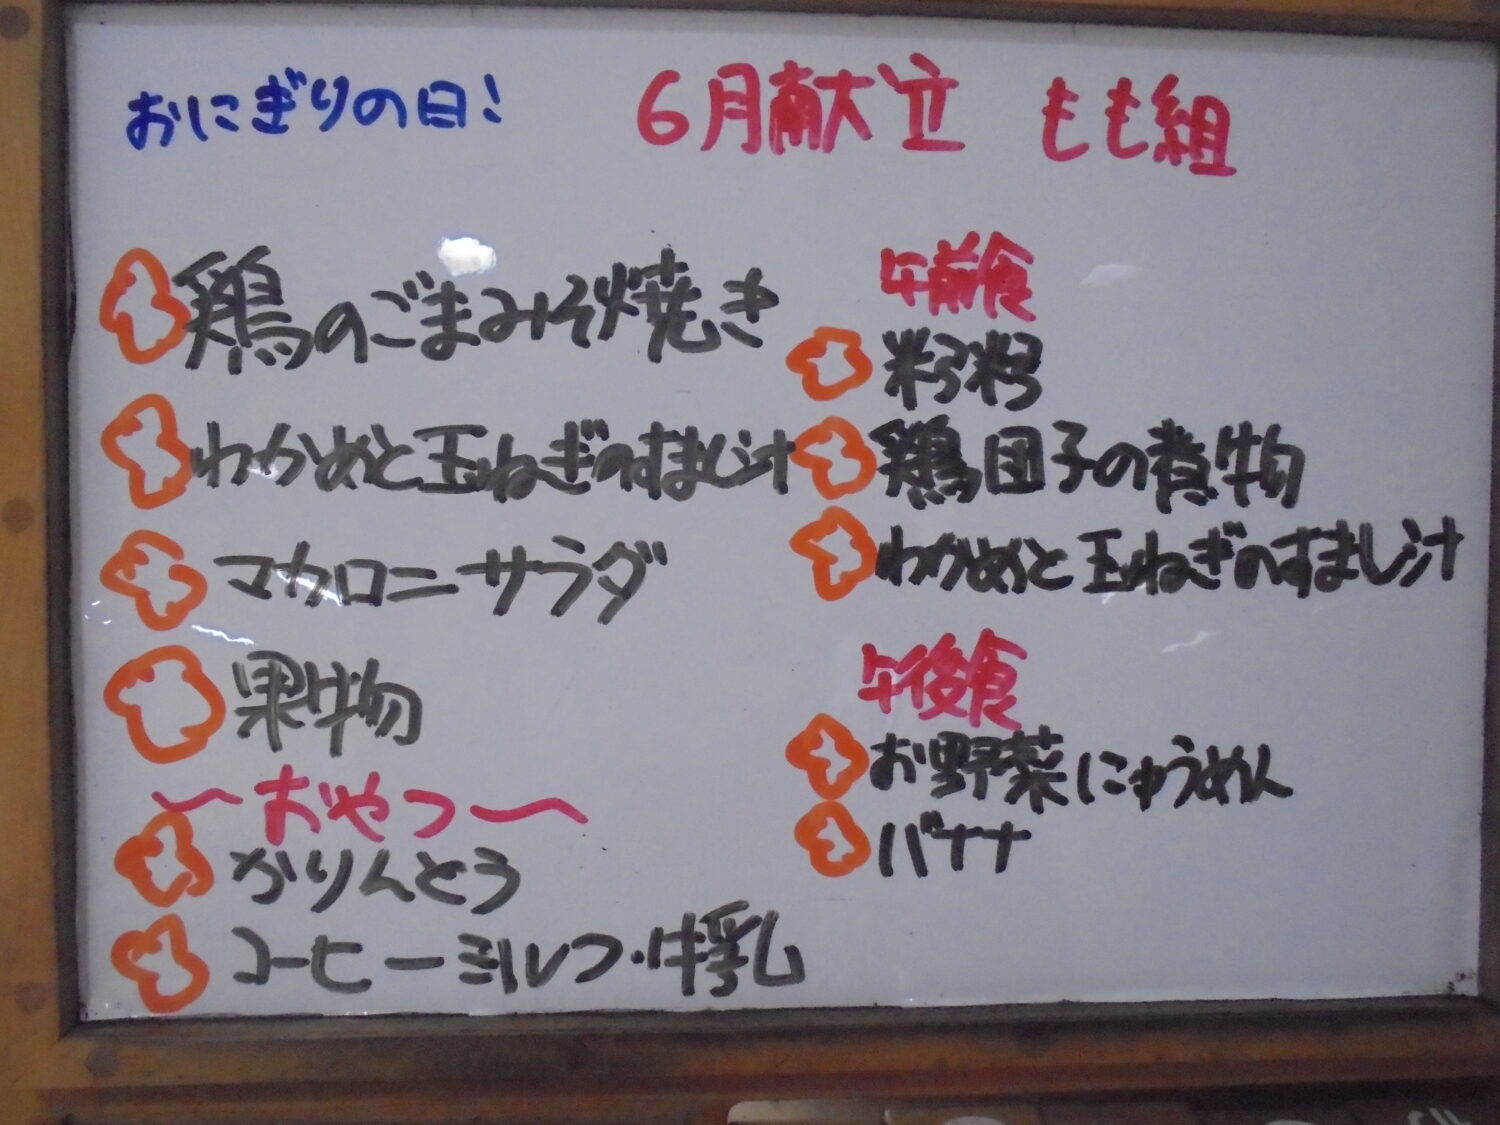 おにぎりの日!
6月献立 もも組
鶏のごまみそ焼き
わかめと玉ねぎのすまし汁
マカロニーサラダ
果物
〜おやつ〜
かりんとう
コーヒーミルク・牛乳
午前食
鶏団子の煮物
わかめと玉ねぎのすまし汁
午後食
お野菜にゅうめん
バナナ